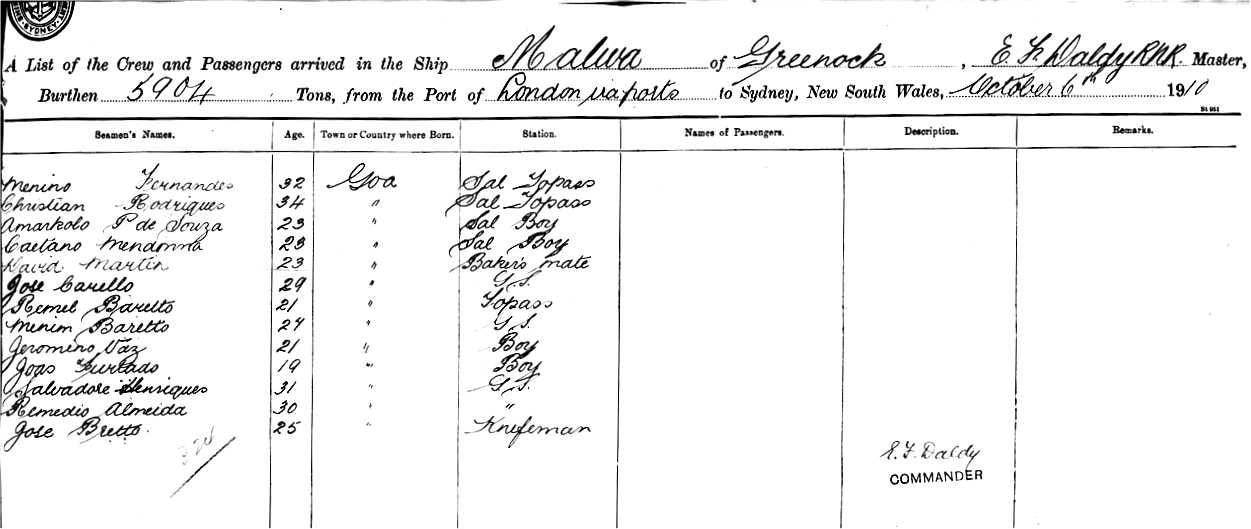 SYDNEY
A List of the Crew and Passengers arrived in the Ship Malwa of Greenock, E. F. Daldy RNR. Master,
Burthen 5904 Tons, from the Port of London via ports to Sydney, New South Wales, October 6th 1910
St 961
Seamen's Names. Age. Town or Country where Born. Station. Names of Passengers. Description. Remarks.
Menino Fernandes 32 Goa Sal Topass
Christian Rodrigues 34 " Sal Topass
Amarkolo P de Souza 23 " Sal Boy
Caetano Mendonna 23 " Sal Boy
David Martin 23 " Baker's mate
Jose Carello 29 " G.S.
Remel Baretto 21 " Topass
Menim Baretto 24 " G.S.
Jeromino Vaz 21 " Boy
Joas Furtado 19 " Boy
Salvadore Henriques 31 " G.S.
Remedio Almeida 30 " "
Jose Bretto. 25 " Knifeman
E. F. Daldy
COMMANDER